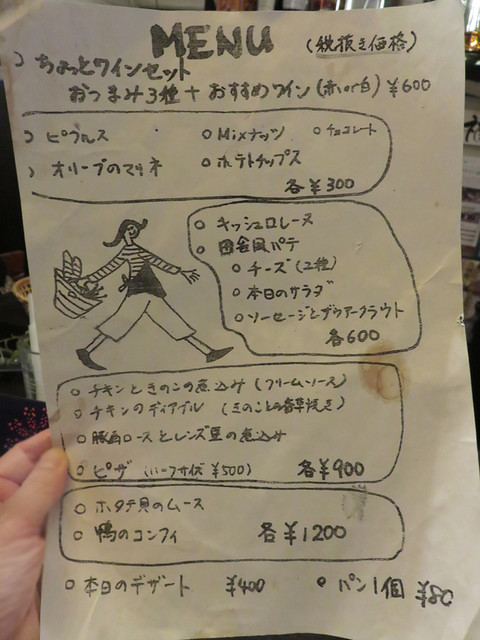 MENU (税抜き価格)
○ ちょっとワインセット
おつまみ3種 + おすすめワイン (赤 or 白) ¥600
○ ピクルス ○ Mixナッツ ○ チョコレート
○ オリーブのマリネ ○ ポテトチップス
各¥300
○ キッシュロレーヌ
○ 田舎風パテ
○ チーズ (2種)
○ 本日のサラダ
○ ソーセージとザワアークラウト
各600
○ チキンときのこの煮込み (クリームソース)
○ チキンのディアブル (きのことの香草焼き)
○ 豚肩ロースとレンズ豆の煮込み
○ ピザ (ハーフサイズ ¥500) 各¥900
○ ホタテ貝のムース
○ 鴨のコンフィ 各¥1200
○ 本日のデザート ¥400 ○ パン1個 ¥80